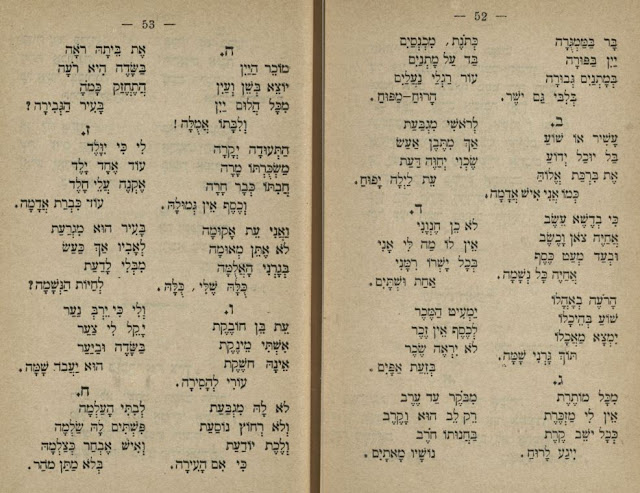 — 52 —
בָּר בַּמַּמְּגֻרָה
יַיִן בַּפּוּרָה
בְּמָתְנַיִם גְּבוּרָה
בְּלִבִּי גַּם יֹשֶׁר.
ב.
עָשִׁיר אוֹ שׁוֹעַ
בַּל יוּכַל יְדוֹעַ
אֶת בִּרְכַּת אֱלוֹהַּ
כְּמוֹ אֲנִי אִישׁ אֲדָמָה.
כִּי בְדֶשֶׁא עֵשֶׂב
אֲחַיֶּה צֹאן וָכֶשֶׂב
וּבְעַד מְעַט כֶּסֶף
אֲחַיֶּה כָּל נְשָׁמָה.
הָרֹעֶה בְאָהֳלוֹ
שׁוֹעַ בְּהֵיכָלוֹ
יִמְצָא מַאֲכָלוֹ
תּוֹךְ גָּרְנִי שָׁמָּה.
ג.
מִכָּל מוֹתֶרֶת
אֵין לִי מַזְכֶּרֶת
כְּכָל יֹשֵׁב קֶרֶת
יִיגַע לָרוּחַ.
כְּתֹנֶת, מִכְנָסַיִם
בַּד עַל מָתְנַיִם
עוֹר רַגְלַי נַעֲלַיִם
הָרוּחַ–מַפּוּחַ.
לְרֹאשִׁי מִגְבַּעַת
אַךְ מִתֶּבֶן אֵעָשׂ
שֶׂכְוִי יְחַוֶּה דַּעַת
עֵת לַיְלָה יָפוּחַ.
ד.
לֹא כֵן חֶנְוָנִי
אֵין לוֹ מַה לִּי אָנִי
בְּכָל יָשְׁרוֹ רִמַּנִי
אַחַת וּשְׁתָּיִם.
יַמְעִיט הַמֶּכֶר
לַכֶּסֶף אֵין זֵכֶר
לֹא יִרְאֶה שֶׂכֶר
בְּזֵעַת אַפָּיִם.
מִבֹּקֶר עַד עֶרֶב
רֵק לֵב הוּא וָקֶרֶב
בַּחֲנוּתוֹ חֹרֶב
נוֹשָׁיו מָאתָיִם.
— 53 —
ה.
מוֹכֵר הַיַּיִן
יוֹצֵא בְּשֵׁן וָעַיִן
מִכָּל הֲלוּם יַיִן
וְלִבָּתוֹ אֲמֻלָּה!
הַתְּעוּדָה יְקָרָה
מַשְׂכֻּרְתּוֹ מָרָה
חַבְתּוֹ כְּבָר חָרָה
וָכֶסֶף אֵין גְּמוּלָהּ.
וַאֲנִי עֵת אָקוּמָה
לֹא אֶתֵּן מְאוּמָה
בְּגָרְנִי הָאֲלֻמָּה
כֻּלָּהּ שֶׁלִּי, כֻּלָּהּ.
ו.
עֵת בֵּן חוֹבֶקֶת
אִשְׁתִּי מֵינֶקֶת
אֵינֶנָּה חֹשֶׁקֶת
עוֹרִי לַחֲסִירָה.
לֹא לָהּ מִגְבַּעַת
וְלֹא רְחוֹץ נוֹסַעַת
וְלֶכֶת יוֹדַעַת
כִּי אִם הָעִירָה.
אֶת בֵּיתָהּ רֹאָה
בַּשָּׂדֶה הִיא רֹעָה
הֲתֶחֱזַק כָּמֹהָ
בָּעִיר הַגְּבִירָה?
ז.
לִי כִּי יִוָּלֵד
עוֹד אֶחָד יֶלֶד
אֶקְנֶה עֲלֵי חֶלֶד
עוֹד כִּבְרַת אֲדָמָה.
בָּעִיר הוּא מִגְרַעַת
לְאָבִיו אַךְ כַּעַשׂ
מִבְּלִי לָדַעַת
לִחְיוֹת הַנְּשָׁמָה?
וְלִי כִּי יֶרֶב נַעַר
יָקֵל לִי צַעַר
בַּשָּׂדֶה וּבַיַּעַר
הוּא יַעֲבֹד שָׁמָּה.
ח.
לְבִתִּי הָעַלְמָה
פִּשְׁתִּים לָהּ שַׂלְמָה
וְאִישׁ אֶבְחַר כְּצַלְמָהּ
בְּלֹא מַתַּן מֹהַר.